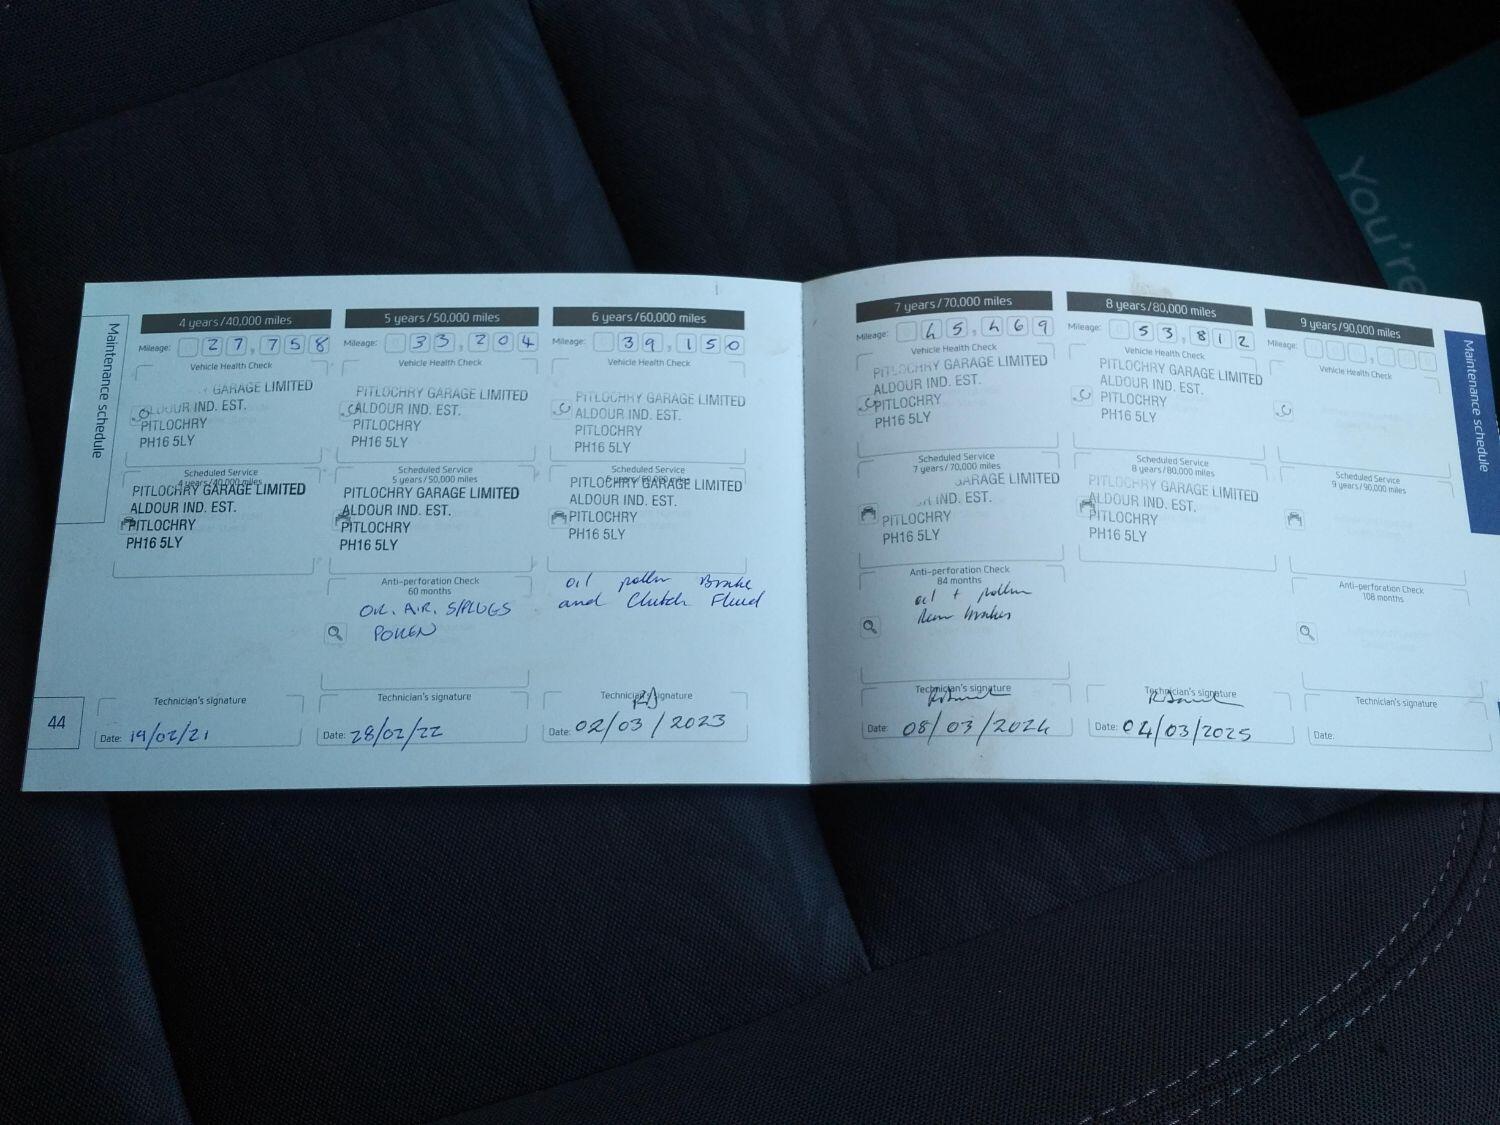 Maintenance schedule
4 years/40,000 miles
Mileage: 27,758
Vehicle Health Check
GARAGE LIMITED
ALDOUR IND. EST.
PITLOCHRY
PH16 5LY
Scheduled Service
4 years/40,000 miles
PITLOCHRY GARAGE LIMITED
ALDOUR IND. EST.
PITLOCHRY
PH16 5LY
Technician's signature
Date: 19/02/21
44
5 years/50,000 miles
Mileage: 33,204
Vehicle Health Check
PITLOCHRY GARAGE LIMITED
ALDOUR IND. EST.
PITLOCHRY
PH16 5LY
Scheduled Service
5 years/50,000 miles
PITLOCHRY GARAGE LIMITED
ALDOUR IND. EST.
PITLOCHRY
PH16 5LY
Anti-perforation Check
60 months
OIL. AIR. S/PLUGS
POLLEN
Technician's signature
Date: 28/02/22
6 years/60,000 miles
Mileage: 39,150
Vehicle Health Check
PITLOCHRY GARAGE LIMITED
ALDOUR IND. EST.
PITLOCHRY
PH16 5LY
Scheduled Service
6 years/60,000 miles
PITLOCHRY GARAGE LIMITED
ALDOUR IND. EST.
PITLOCHRY
PH16 5LY
oil pollen Brake
and Clutch Fluid
Technician's signature
Date: 02/03/2023
7 years/70,000 miles
Mileage: 45,469
Vehicle Health Check
PITLOCHRY GARAGE LIMITED
ALDOUR IND. EST.
PITLOCHRY
PH16 5LY
Scheduled Service
7 years/70,000 miles
GARAGE LIMITED
IND. EST.
PITLOCHRY
PH16 5LY
Anti-perforation Check
84 months
oil + pollen
Rear brakes
Technician's signature
Date: 08/03/2024
8 years/80,000 miles
Mileage: 53,812
Vehicle Health Check
PITLOCHRY GARAGE LIMITED
ALDOUR IND. EST.
PITLOCHRY
PH16 5LY
Scheduled Service
8 years/80,000 miles
PITLOCHRY GARAGE LIMITED
ALDOUR IND. EST.
PITLOCHRY
PH16 5LY
Technician's signature
Date: 04/03/2025
9 years/90,000 miles
Mileage:
Vehicle Health Check
Scheduled Service
9 years/90,000 miles
Anti-perforation Check
108 months
Technician's signature
Date:
Maintenance schedule
You're